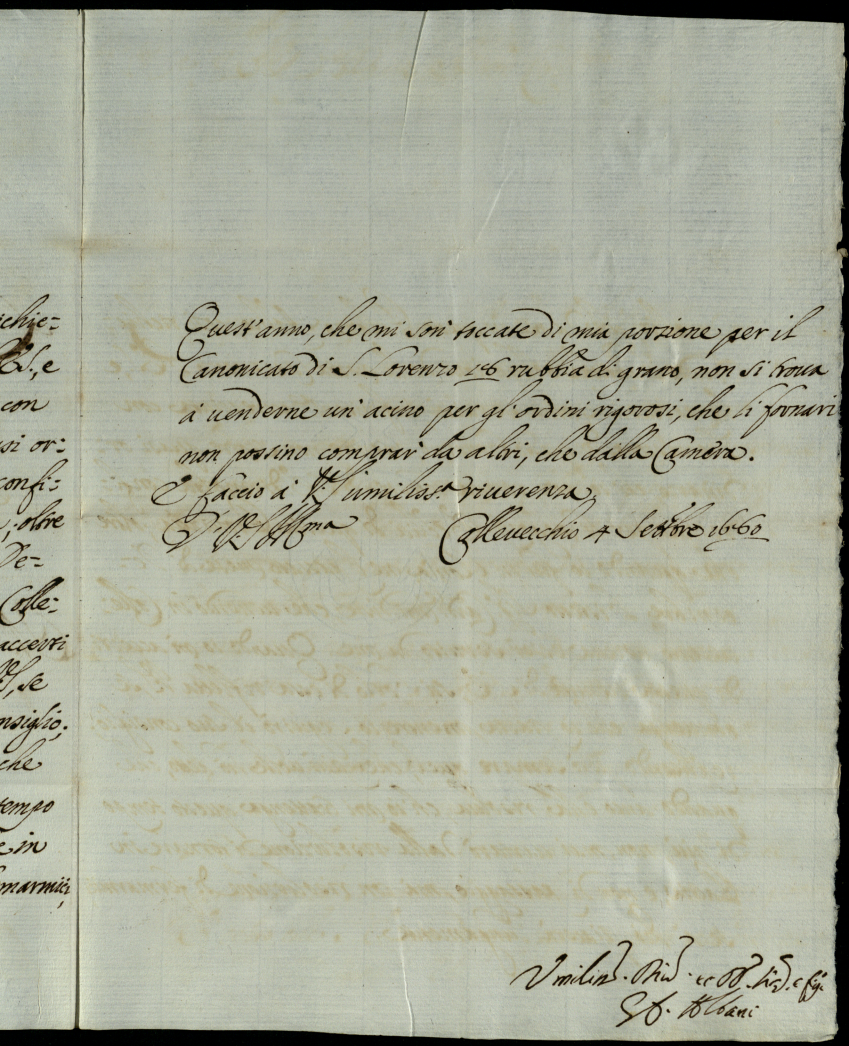 chie=
S., e
con
si or=
confi=
; oltre
De=
Colle=
accerti
se
nsiglio;
che
tempo
e in
marmi
Quest'anno, che mi son' toccate di mia porzione per il
Canonicato di S. Lorenzo 186 rubbia di grano, non si troua
à uenderne un' acino per gl' ordini rigorosi, che li fornari
non possino comprar' da altri, che dalla Camera.
E faccio à V. S. umiliss.a riuerenza.
D. V. S. Ill.ma Colleuecchio 4 Settbre 1660
Umiliss.
Albani